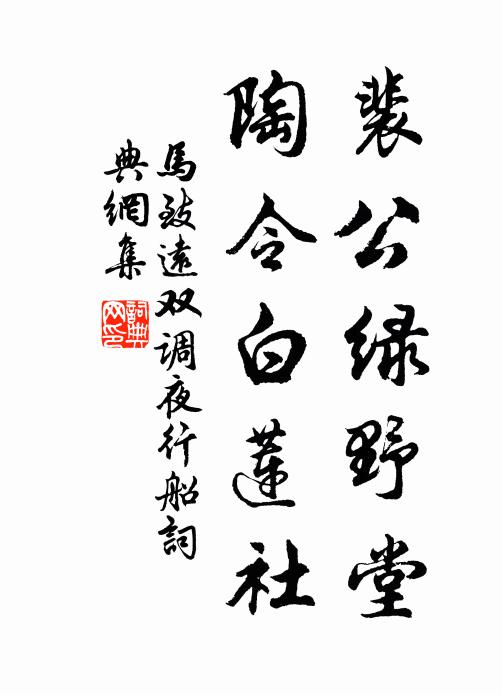 裴公绿野堂
陶令白莲社
馬致遠双调夜行船詞
典網集
詞典网印